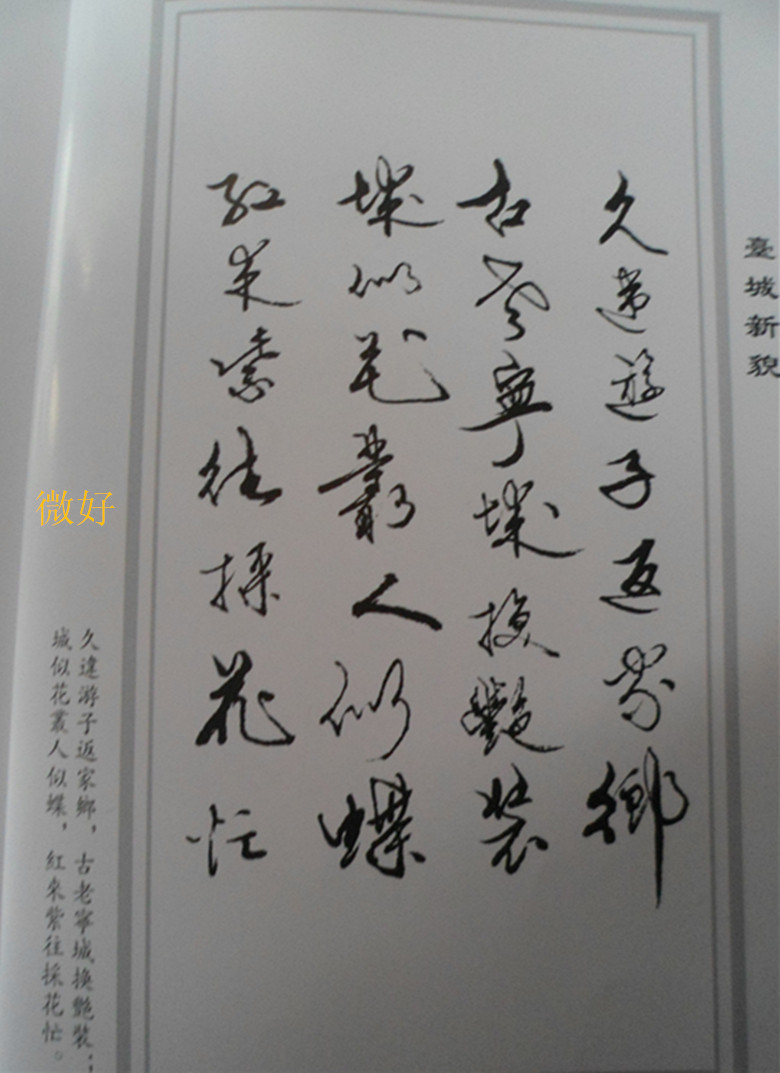 臺城新貌
久違遊子返家鄉
古老寧城換艷裝
城似花叢人似蝶
紅来紫往採花忙
微好
久違游子返家鄉，古老寧城換艷裝；
城似花叢人似蝶，紅來紫往採花忙。